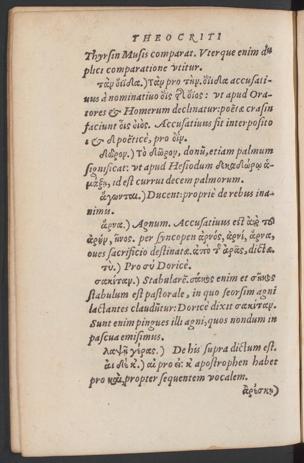 THEOCRITI
Thyrsin Musis comparat. Vterque enim du
plici comparatione vtitur.
τὰν ὄϊιδα.) τὰν pro τὴν. ὄϊιδα accusati-
uus à nominatiuo ὄϊς ὄϊος: vt apud Ora-
tores & Homerum declinatur: poëtæ crasin
faciunt οἶς οἰός. Accusatiuus fit interposito
ι & δ poëticè, pro ὄϊν.
δῶρον.) Τὸ δῶρον, donũ, etiam palmum
significat: vt apud Hesiodum δεκαδώρῳ ἁ-
μάξῃ, id est currui decem palmorum.
ἄγονται.) Ducent: propriè de rebus ina-
nimis.
ἄρνα.) Agnum. Accusatiuus est ἀπὸ τοῦ
ἀρὴν, ένος. per syncopen ἀρνός, ἀρνί, ἄρνα,
oues sacrificio destinatæ. ἀπὸ τ ἀρᾶς, dictæ.
τύ.) Pro σύ Doricè.
σακίταν.) Stabularē. σάκος enim et σῆκος
stabulum est pastorale, in quo seorsim agni
lactantes claudũtur: Doricè dixit σακίταν.
Sunt enim pingues illi agni, quos nondum in
pascua emisimus.
λαψῇ γέρας.) De his supra dictum est.
αἱ δὲ κ.) αἱ pro εἰ: κ apostrophen habet
pro καὶ, propter sequentem vocalem.
ἀρέσκῃ)